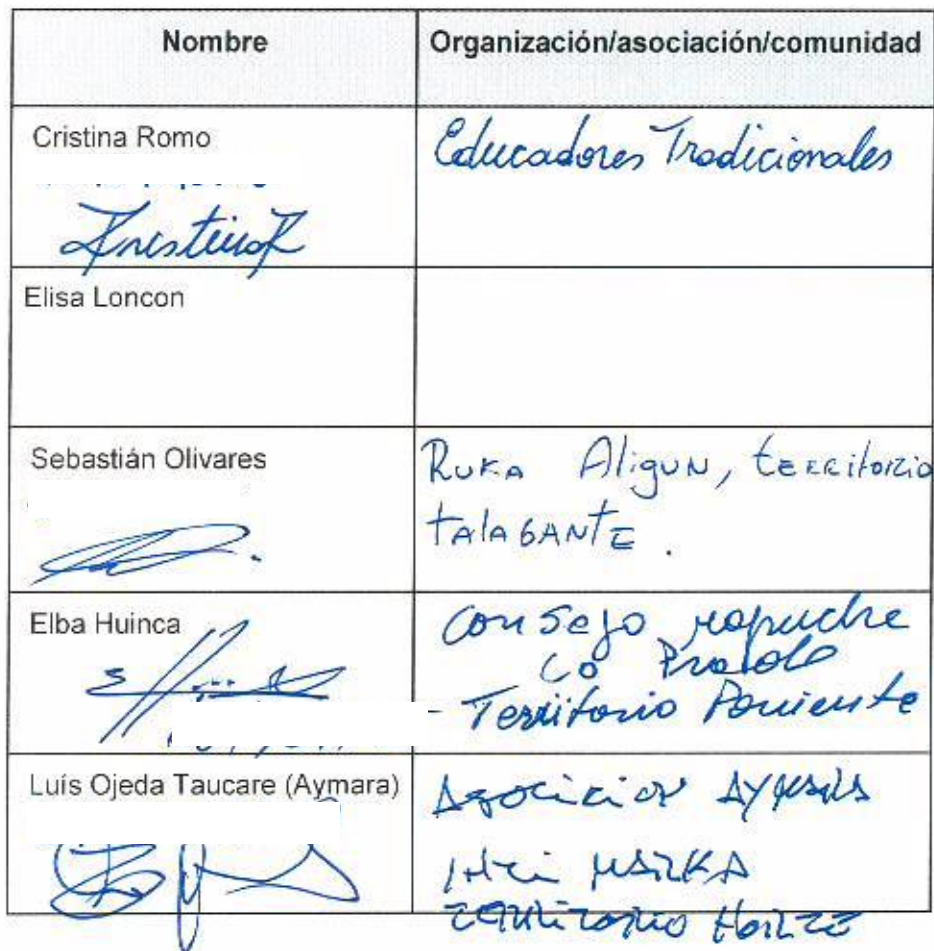 Nombre
Organización/asociación/comunidad
Cristina Romo
Educadores Tradicionales
Elisa Loncon
Sebastián Olivares
Ruka Aligun, territorio
talagante.
Elba Huinca
Consejo mapuche
Co
Territorio Poniente
Luís Ojeda Taucare (Aymara)
Aymara
Marka
territorio